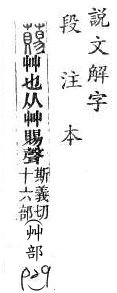 説文解字
段注本
䕣艸也从艸賜聲斯義切十六部(艸部
P29